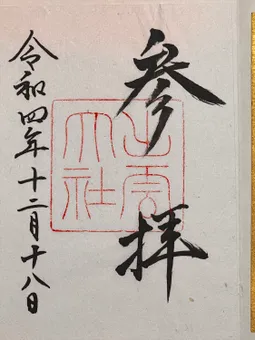 参拝
出雲大社
令和四年十二月十八日